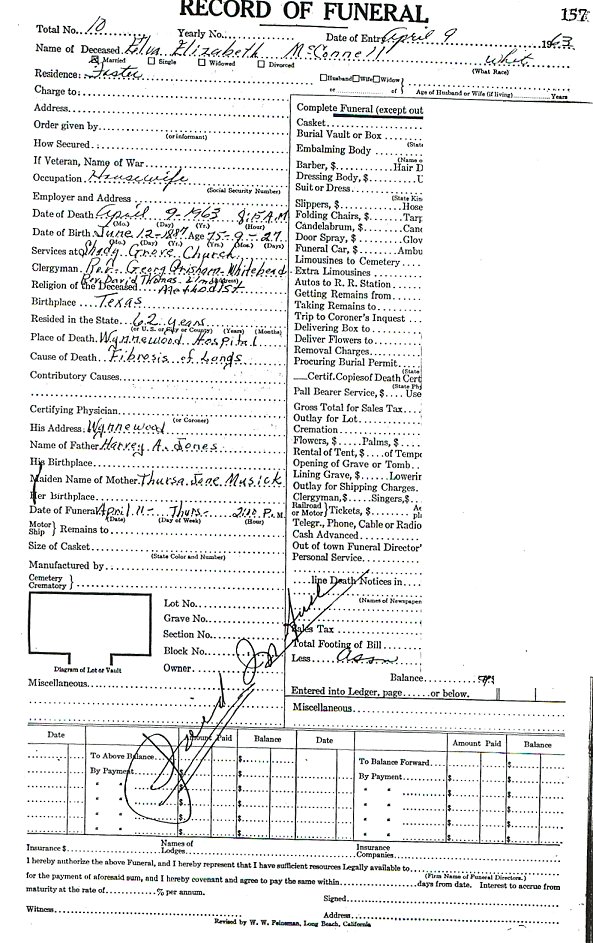 RECORD OF FUNERAL
157
Total No. 10 Yearly No. Date of Entry April 9 1963
Name of Deceased Elizabeth McConnell White
Married Single Widowed Divorced (What Race)
Residence: Foster Husband Wife Widow or of Age of Husband or Wife (if living) Years
Charge to:
Address
Order given by
(or informant)
How Secured
If Veteran, Name of War
Occupation Housewife
(Social Security Number)
Employer and Address
Date of Death April 9-1963 8:15 A.M
(Mo.) (Day) (Yr.) (Hour)
Date of Birth June 12-1887 Age 75-9-27
(Mo.) (Day) (Yr.) (Yrs.) (Mo.) (Days)
Services at Shady Grove Church
Clergyman Rev. Georg Grisham-Whitebead
Rev David Thomas
Religion of the Deceased Methodist
Birthplace Texas
Resided in the State 62 years
(or U. S. or City or County) (Years) (Months)
Place of Death Wynnewood Hospital
Cause of Death Fibrosis of Lungs
Contributory Causes
Certifying Physician
(or Coroner)
His Address Wynnewood
Name of Father Harvey A. Jones
His Birthplace
Maiden Name of Mother Thursa Jane Musick
Her Birthplace
Date of Funeral April 11- Thurs- 2:00 P.M.
(Date) (Day of Week) (Hour)
Motor Ship } Remains to
Size of Casket
(State Color and Number)
Manufactured by
Cemetery Crematory }
Lot No.
Grave No.
Section No.
Block No.
Owner
Diagram of Lot or Vault
Miscellaneous
Complete Funeral (except out
Casket
Burial Vault or Box
(State
Embalming Body
(Name o
Barber, $ Hair D
Dressing Body, $ U
Suit or Dress
(State Kin
Slippers, $ Hose
Folding Chairs, $ Tarp
Candelabrum, $ Cand
Door Spray, $ Glov
Funeral Car, $ Ambu
Limousines to Cemetery
Extra Limousines
Autos to R. R. Station
Getting Remains from
Taking Remains to
Trip to Coroner's Inquest
Delivering Box to
Deliver Flowers to
Removal Charges
Procuring Burial Permit
(State
Certif. Copies of Death Cert
(State Ph
Pall Bearer Service, $ Use
Gross Total for Sales Tax
Outlay for Lot
Cremation
Flowers, $ Palms, $
Rental of Tent, $ of Tempo
Opening of Grave or Tomb
Lining Grave, $ Lowerin
Outlay for Shipping Charges
Clergyman, $ Singers, $
Railroad or Motor } Tickets, $
Telegr., Phone, Cable or Radio
Cash Advanced
Out of town Funeral Director'
Personal Service
line Death Notices in
(Names of Newspaper
Sales Tax
Total Footing of Bill
Less Assn
Balance
Entered into Ledger, page or below.
Miscellaneous
Date Amount Paid Balance Date Amount Paid Balance
To Above Balance $ To Balance Forward $
By Payment $ By Payment $
" " $ " " $
" " $ " " $
" " $ " " $
" " $ " " $
Insurance $ Names of Lodges Insurance Companies
I hereby authorize the above Funeral, and I hereby represent that I have sufficient resources Legally available to
(Firm Name of Funeral Directors.)
for the payment of aforesaid sum, and I hereby covenant and agree to pay the same within days from date. Interest to accrue from
maturity at the rate of % per annum. Signed
Witness Address
Revised by W. W. Feineman, Long Beach, California